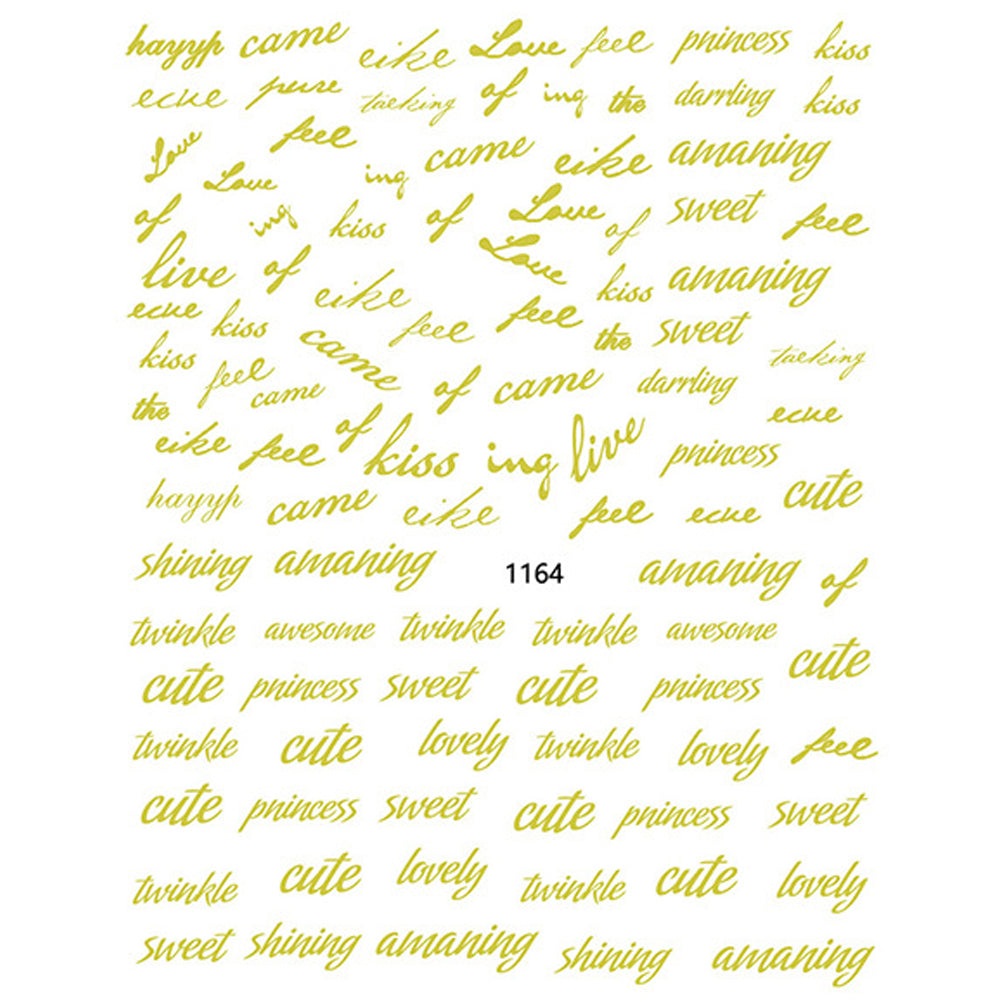 hayyp came eike Love feel pnincess kiss
ecue pure taeking of ing the darrling kiss
Love feel Love ing came eike amaning
of ing kiss of Love of sweet feel
live of eike Love kiss amaning
ecue kiss feel feel the sweet
kiss feel came came of came darrling taeking
the eike feel of kiss ing live pnincess ecue
hayyp came eike feel ecue cute
shining amaning 1164 amaning of
twinkle awesome twinkle twinkle awesome
cute pnincess sweet cute pnincess cute
twinkle cute lovely twinkle lovely feel
cute pnincess sweet cute pnincess sweet
twinkle cute lovely twinkle cute lovely
sweet shining amaning shining amaning